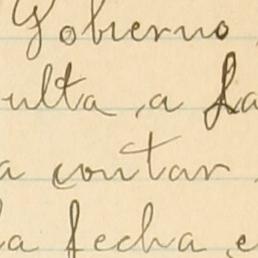 Gobierno
ulta, a La
a contar
la fecha, e